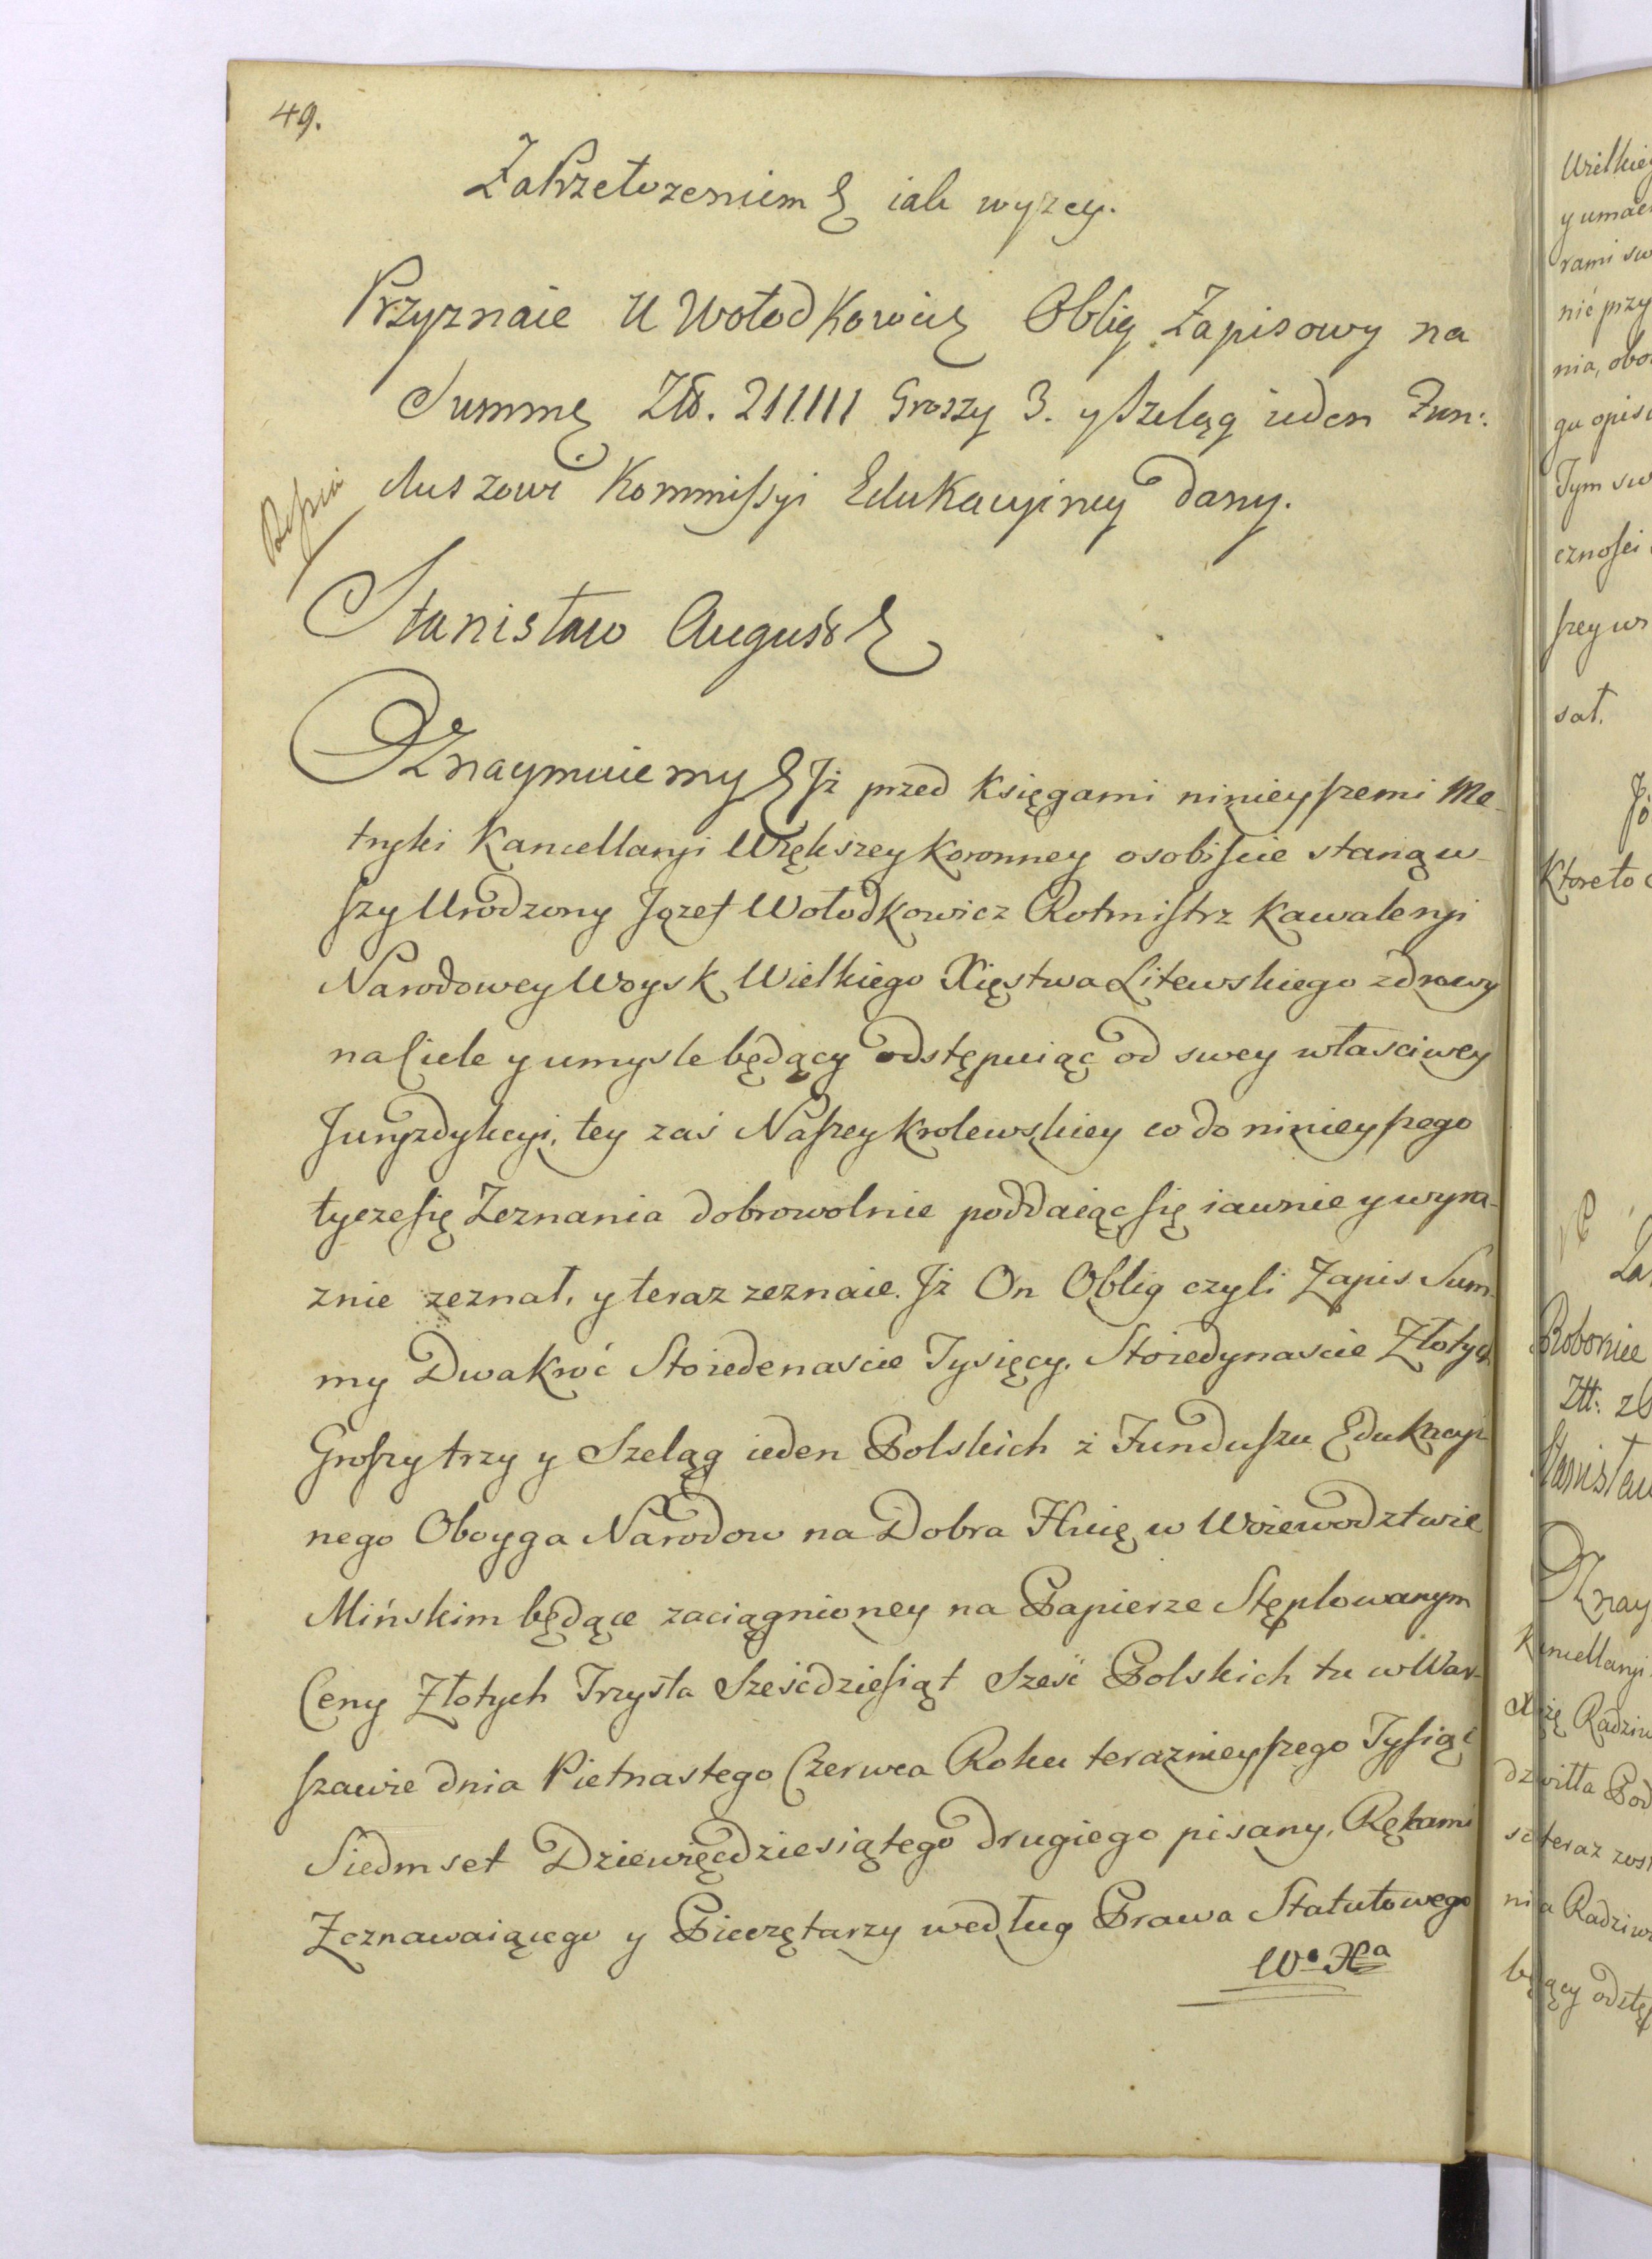 49.
Za Przełozeniem &c iak wyzey.
Przyznaie U Wołodkowicz Oblig Zapisowy na
Summę Zło. 211.111 Groszy 3. y Szeląg ieden Fun:
duszowi Kommissyi Edukacyiney dany.
Stanisław August &c
Oznaymuiemy &c Jż przed Księgami ninieyszemi Me-
tryki Kancellaryi Większey Koronney osobiscie stanąw-
szy Urodzony Jozef Wołodkowicz Rotmistrz Kawaleryi
Narodowey Woysk Wielkiego Xięstwa Litewskiego zdrowy
na Ciele y umysle będący odstępuiąc od swey własciwey
Juryzdykcyi, tey zaś Naszey Krolewskiey co do ninieyszego
tycze się Zeznania dobrowolnie poddaiąc się iawnie y wyra-
znie zeznał, y teraz zeznaie. Jż On Oblig czyli Zapis Sum-
my Dwakroć Stoiedenascie Tysięcy, Stoiedynascie Złotych
Groszy trzy y Szeląg ieden Polskich z Funduszu Edukacyi-
nego Oboyga Narodow na Dobra w Woiewodztwie
Mińskim będące zaciągnioney na Papierze Stęplowanym
Ceny Złotych Trzysta Szescdziesiąt Szesc Polskich tu w War-
szawie dnia Pietnastego Czerwca Roku terazniéyszego Tysiąc
Siedmset Dziewięcdziesiątego drugiego pisany, Rękami
Zeznawaiącego y Pieczętarzy według Prawa Statutowego
Wo Xa
Wielkieg
y umac
rami sw
nić przy
nia, obo
gu opis
Tym sw
cznosci
szey w
sał.
Ktore to
Robonie
Złł:
Stanisław
Oznay
Kancellaryi
Xżę Radziw
dziwiłła Pod
teraz
nia Radziw
będący odstęp